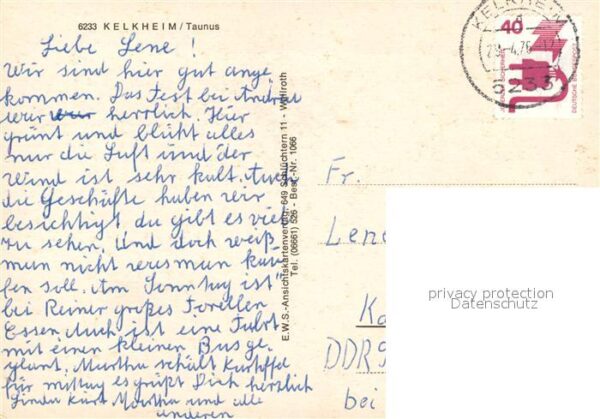 6233 KELKHEIM / Taunus
Liebe Lene!
Wir sind hier gut ange
kommen. Das Fest bei Andrea
war herrlich. Hier
grünt und blüht alles
nur die Luft und der
Wind ist sehr kalt. Auch
die Geschäfte haben wir
besichtigt, da gibt es viel
zu sehen. Und doch weiß
mun nicht was mun kau
fen soll. Am Sonntag ist
bei Reiner großes Forellen
Essen. Auch ist eine Fahrt
mit einen kleinen Bus ge
plant. Martha schält Kartoffel
für mittag es grüßt Dich herzlich
Linda Kurt Martha und alle
anderen
E.W.S.-Ansichtskartenverlag · 649 Schlüchtern 11 - Wallroth
Tel. (06661) 526 - Best.-Nr. 1066
KELKHEIM
6233
40
DEUTSCHE BUNDESPOST
Fr.
Lene
DDR
bei
privacy protection
Datenschutz